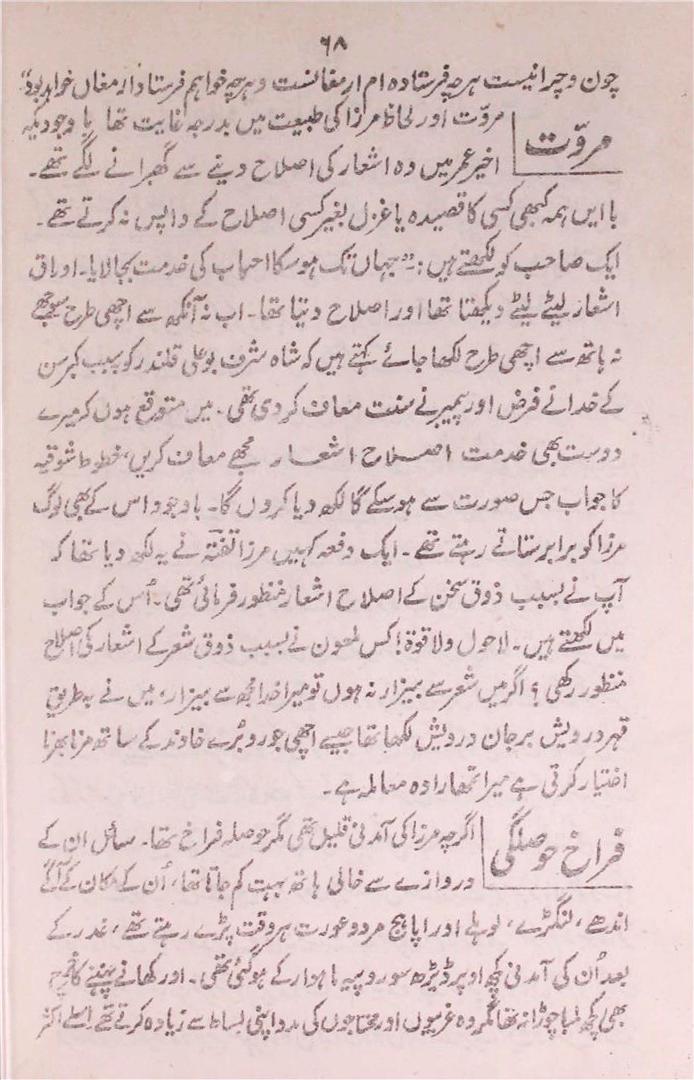 ۶۸
چون و چرا نیست ہرچہ فرستادہ ام ارمغانست و ہرچہ خواہم فرستاد ارمغاں خواہد بود"
مروّت
مروّت اور لحاظ مرزا کی طبیعت میں بدرجہ غایت تھا باوجودیکہ
اخیر عمر میں وہ اشعار کی اصلاح دینے سے گھبرانے لگے تھے۔
با ایں ہمہ کبھی کسی کا قصیدہ یا غزل بغیر کسی اصلاح کے واپس نہ کرتے تھے۔
ایک صاحب کو لکھتے ہیں:۔ "جہاں تک ہو سکا احباب کی خدمت بجا لایا۔ اوراق
اشعار لیٹے لیٹے دیکھتا تھا اور اصلاح دیتا تھا۔ اب نہ آنکھ سے اچھی طرح سوجھے
نہ ہاتھ سے اچھی طرح لکھا جائے کہتے ہیں کہ شاہ شرف بوعلی قلندر کو بسبب کبر سن
کے خدا نے فرض اور پیمبر نے سنت معاف کر دی تھی۔ میں متوقع ہوں کہ میرے
دوست بھی خدمت اصلاح اشعار مجھے معاف کریں، خطوط شوقیہ
کا جواب جس صورت سے ہو سکے گا لکھ دیا کروں گا۔ باوجود اس کے بھی لوگ
مرزا کو برابر ستاتے رہتے تھے۔ ایک دفعہ کہیں مرزا تفتہ نے یہ لکھ دیا تھا کہ
آپ نے بسبب ذوق سخن کے اصلاح اشعار منظور فرمائی تھی۔ اُس کے جواب
میں لکھتے ہیں۔ لاحول ولا قوۃ! کس ملعون نے بسبب ذوق شعر کے اشعار کی اصلاح
منظور رکھی؟ اگر میں شعر سے بیزار نہ ہوں تو میرا خدا مجھ سے بیزار، میں نے بہ طریق
قہر درویش بر جان درویش لکھا تھا جیسے اچھی جورو بُرے خاوند کے ساتھ مرنا بھرنا
اختیار کرتی ہے میرا تمھارا وہ معاملہ ہے۔
فراخ حوصلگی
اگرچہ مرزا کی آمدنی قلیل تھی مگر حوصلہ فراخ تھا۔ سائل ان کے
دروازے سے خالی ہاتھ بہت کم جاتا تھا، اُن کے مکان کے آگے
اندھے، لنگڑے، لولے اور اپاہج مرد و عورت ہر وقت پڑے رہتے تھے، غدر کے
بعد اُن کی آمدنی کچھ اوپر ڈیڑھ سو روپیہ ماہوار کے ہو گئی تھی۔ اور کھانے پہننے کا خرچ
بھی کچھ لمبا چوڑا نہ تھا مگر وہ غریبوں اور محتاجوں کی مدد اپنی بساط سے زیادہ کرتے تھے اسلئے اکثر